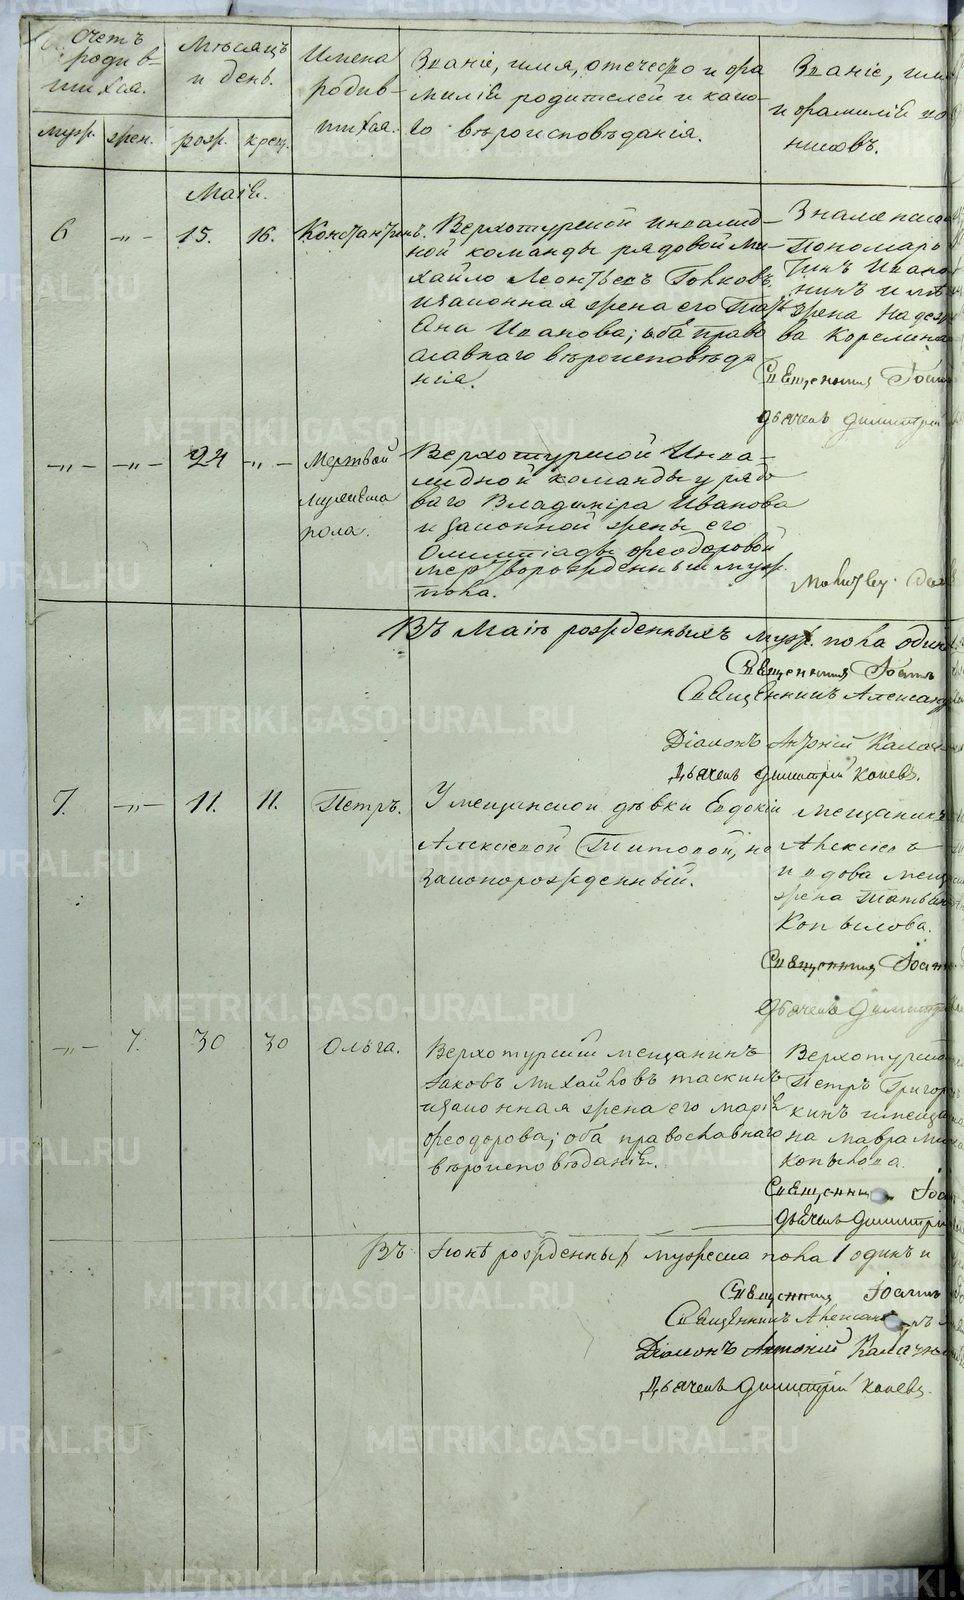 Счетъ родив-
шихся.
муж. жен.
Мѣсяцъ
и день.
рож. крещ.
Имена
родив-
шихся.
Званіе, имя, отечество и фа
миліи родителей и како-
го вѣроисповѣданія.
Званіе, имя
и фамиліи
никовъ.
Маій.
6 -„- 15. 16. Константинъ.
Верхотурской инвалид-
ной команды рядовой Ми-
хайло Леонтьевъ
и законная жена его
Иванова; оба право
славнаго вѣроисповѣда
нія.
Пономаръ
жена Надеж
ва Корелина
Священникъ Іоаннъ
Дьячекъ Димитрій
-„- -„- 24 -„-
Мертвой
мужеска
пола.
Верхотурской Инва-
лидной команды у рядо
ваго Владиміра Иванова
и законной жены его
Олимпіады Феодоровой
мертворожденный муж.
пола.
Въ Маіѣ рожденныхъ муж. пола одинъ
Священникъ Іоаннъ
Священникъ Александръ
Діаконъ Антоній
Дьячекъ Димитрій Коневъ.
7. -„- 11. 11. Петръ.
У мещанской дѣвки Евдокіи
Алексѣевой Титовой, не
законорожденный.
Мещанинъ
Алексѣевъ
и вдова мещ
жена Татьяна
Копылова.
Священникъ Іоаннъ
Дьячекъ Димитрій
-„- 7. 30 30 Ольга.
Верхотурскій мещанинъ
Іаковъ Михайловъ Таскинъ
и законная жена его Марія
Феодорова; оба православнаго
вѣроисповѣданія.
Верхотурской
Петръ Григорь
кинъ и мещан
на Мавра Ми
Копылова.
Священникъ Іоаннъ
Дьячекъ Димитрій
Въ Іюнѣ рожденныхъ мужеска пола 1 одинъ и
Священникъ Іоаннъ
Священникъ Александръ
Діаконъ Антоній
Дьячекъ Димитрій Коневъ.
METRIKI.GASO-URAL.RU